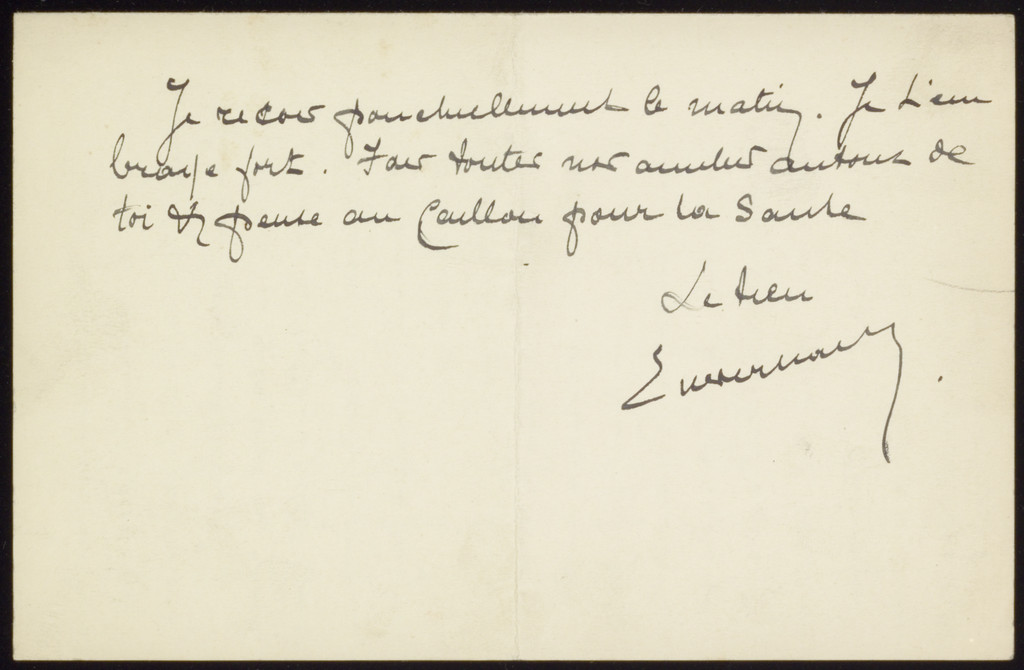 Je reçois ponctuellement le matin. Je t'em
brasse fort. Fais toutes nos amitiés autour de
toi & pense au Caillou pour la Santé
Le tien